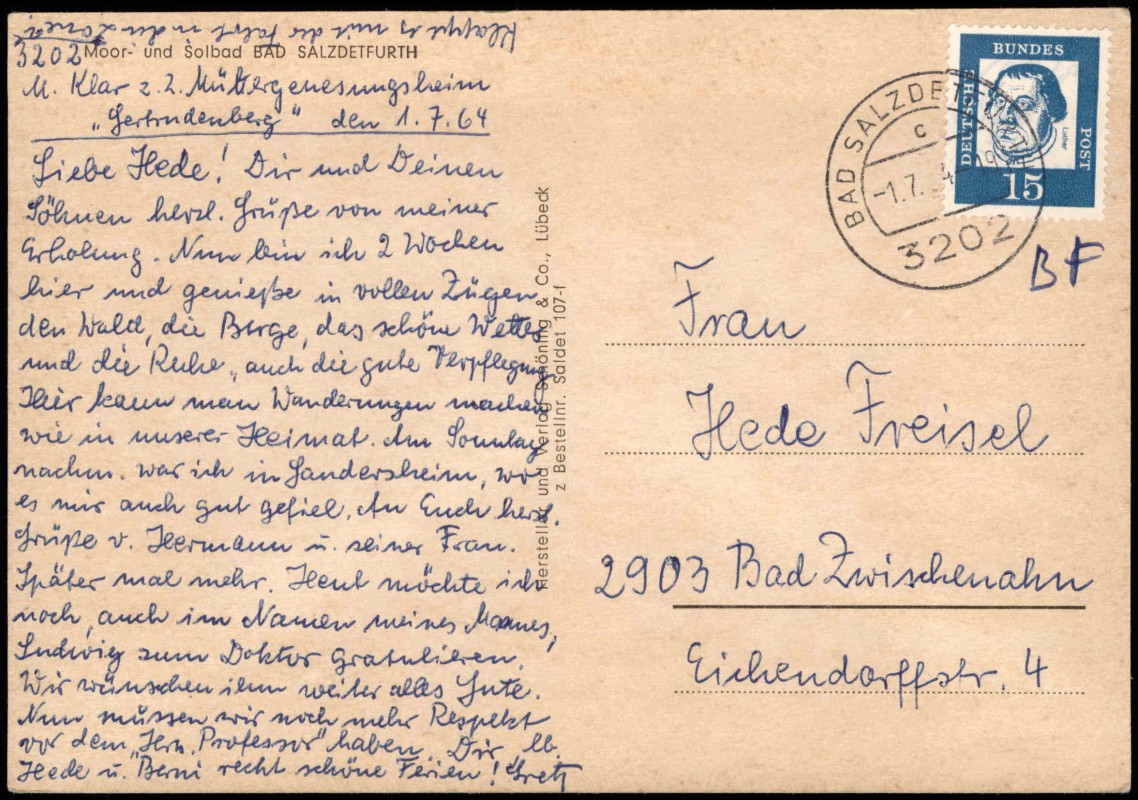 Klappt es mit der Fahrt in den
3202 Moor- und Solbad BAD SALZDETFURTH
M. Klar z. Z. Müttergenesungsheim
„Gertrudenberg" den 1.7.64
Liebe Hede! Dir und Deinen
Söhnen herzl. Grüße von meiner
Erholung. Nun bin ich 2 Wochen
hier und genieße in vollen Zügen
den Wald, die Berge, das schöne Wetter
und die Ruhe, auch die gute Verpflegung.
Hier kann man Wanderungen machen
wie in unserer Heimat. Am Sonntag
nachm. war ich in Gandersheim, wo
es mir auch gut gefiel. An Euch herzl.
Grüße v. Hermann u. seiner Frau.
Später mal mehr. Heut möchte ich
noch, auch im Namen meines Mannes,
Ludwig zum Doktor gratulieren.
Wir wünschen ihm weiter alles Gute.
Nun müssen wir noch mehr Respekt
vor dem „Hrn. Professor" haben. Dir, lb.
Hede u. Berni recht schöne Ferien! Gretl
Hersteller und Verlag Schöning & Co., Lübeck
z Bestellnr. Saldet 107-f
DEUTSCHE BUNDES POST
Luther
15
BAD SALZDETFURTH
c
-1.7.64-19
3202
BF
Frau
Hede Freisel
2903 Bad Zwischenahn
Eichendorffstr. 4